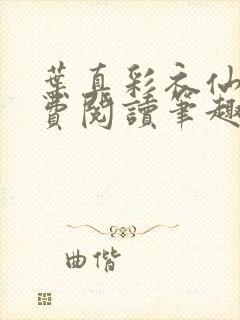 葉真彩衣仙
費閱讀筆趣
曲偕